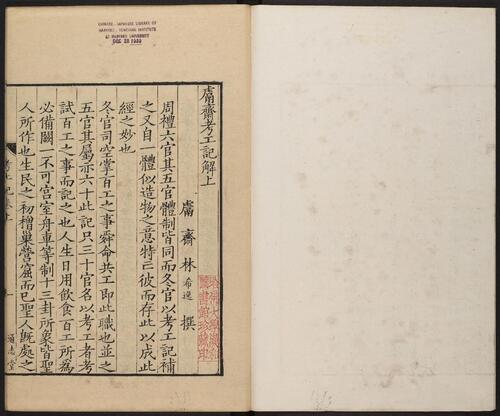 CHINESE-JAPANESE LIBRARY OF
HARVARD-YENCHING INSTITUTE
AT HARVARD UNIVERSITY
DEC 28 1939
鬳齋考工記解上
鬳齋林希逸撰
周禮六官其五官體制皆同而冬官以考工記補
之又自一體似造物之意特亡彼而存此以成此
經之妙也
冬官司空掌百工之事舜命共工即此職也並之
五官其屬亦六十此記只三十官名以考工者考
試百工之事而記之也人生日用飲食百工所爲
必備闕一不可宮室舟車等制十三卦所象皆聖
人所作也生民之初橧巢營窟而已聖人旣處之
考工記卷上
一
通志堂
哈佛大學漢和
圖書館珍藏印